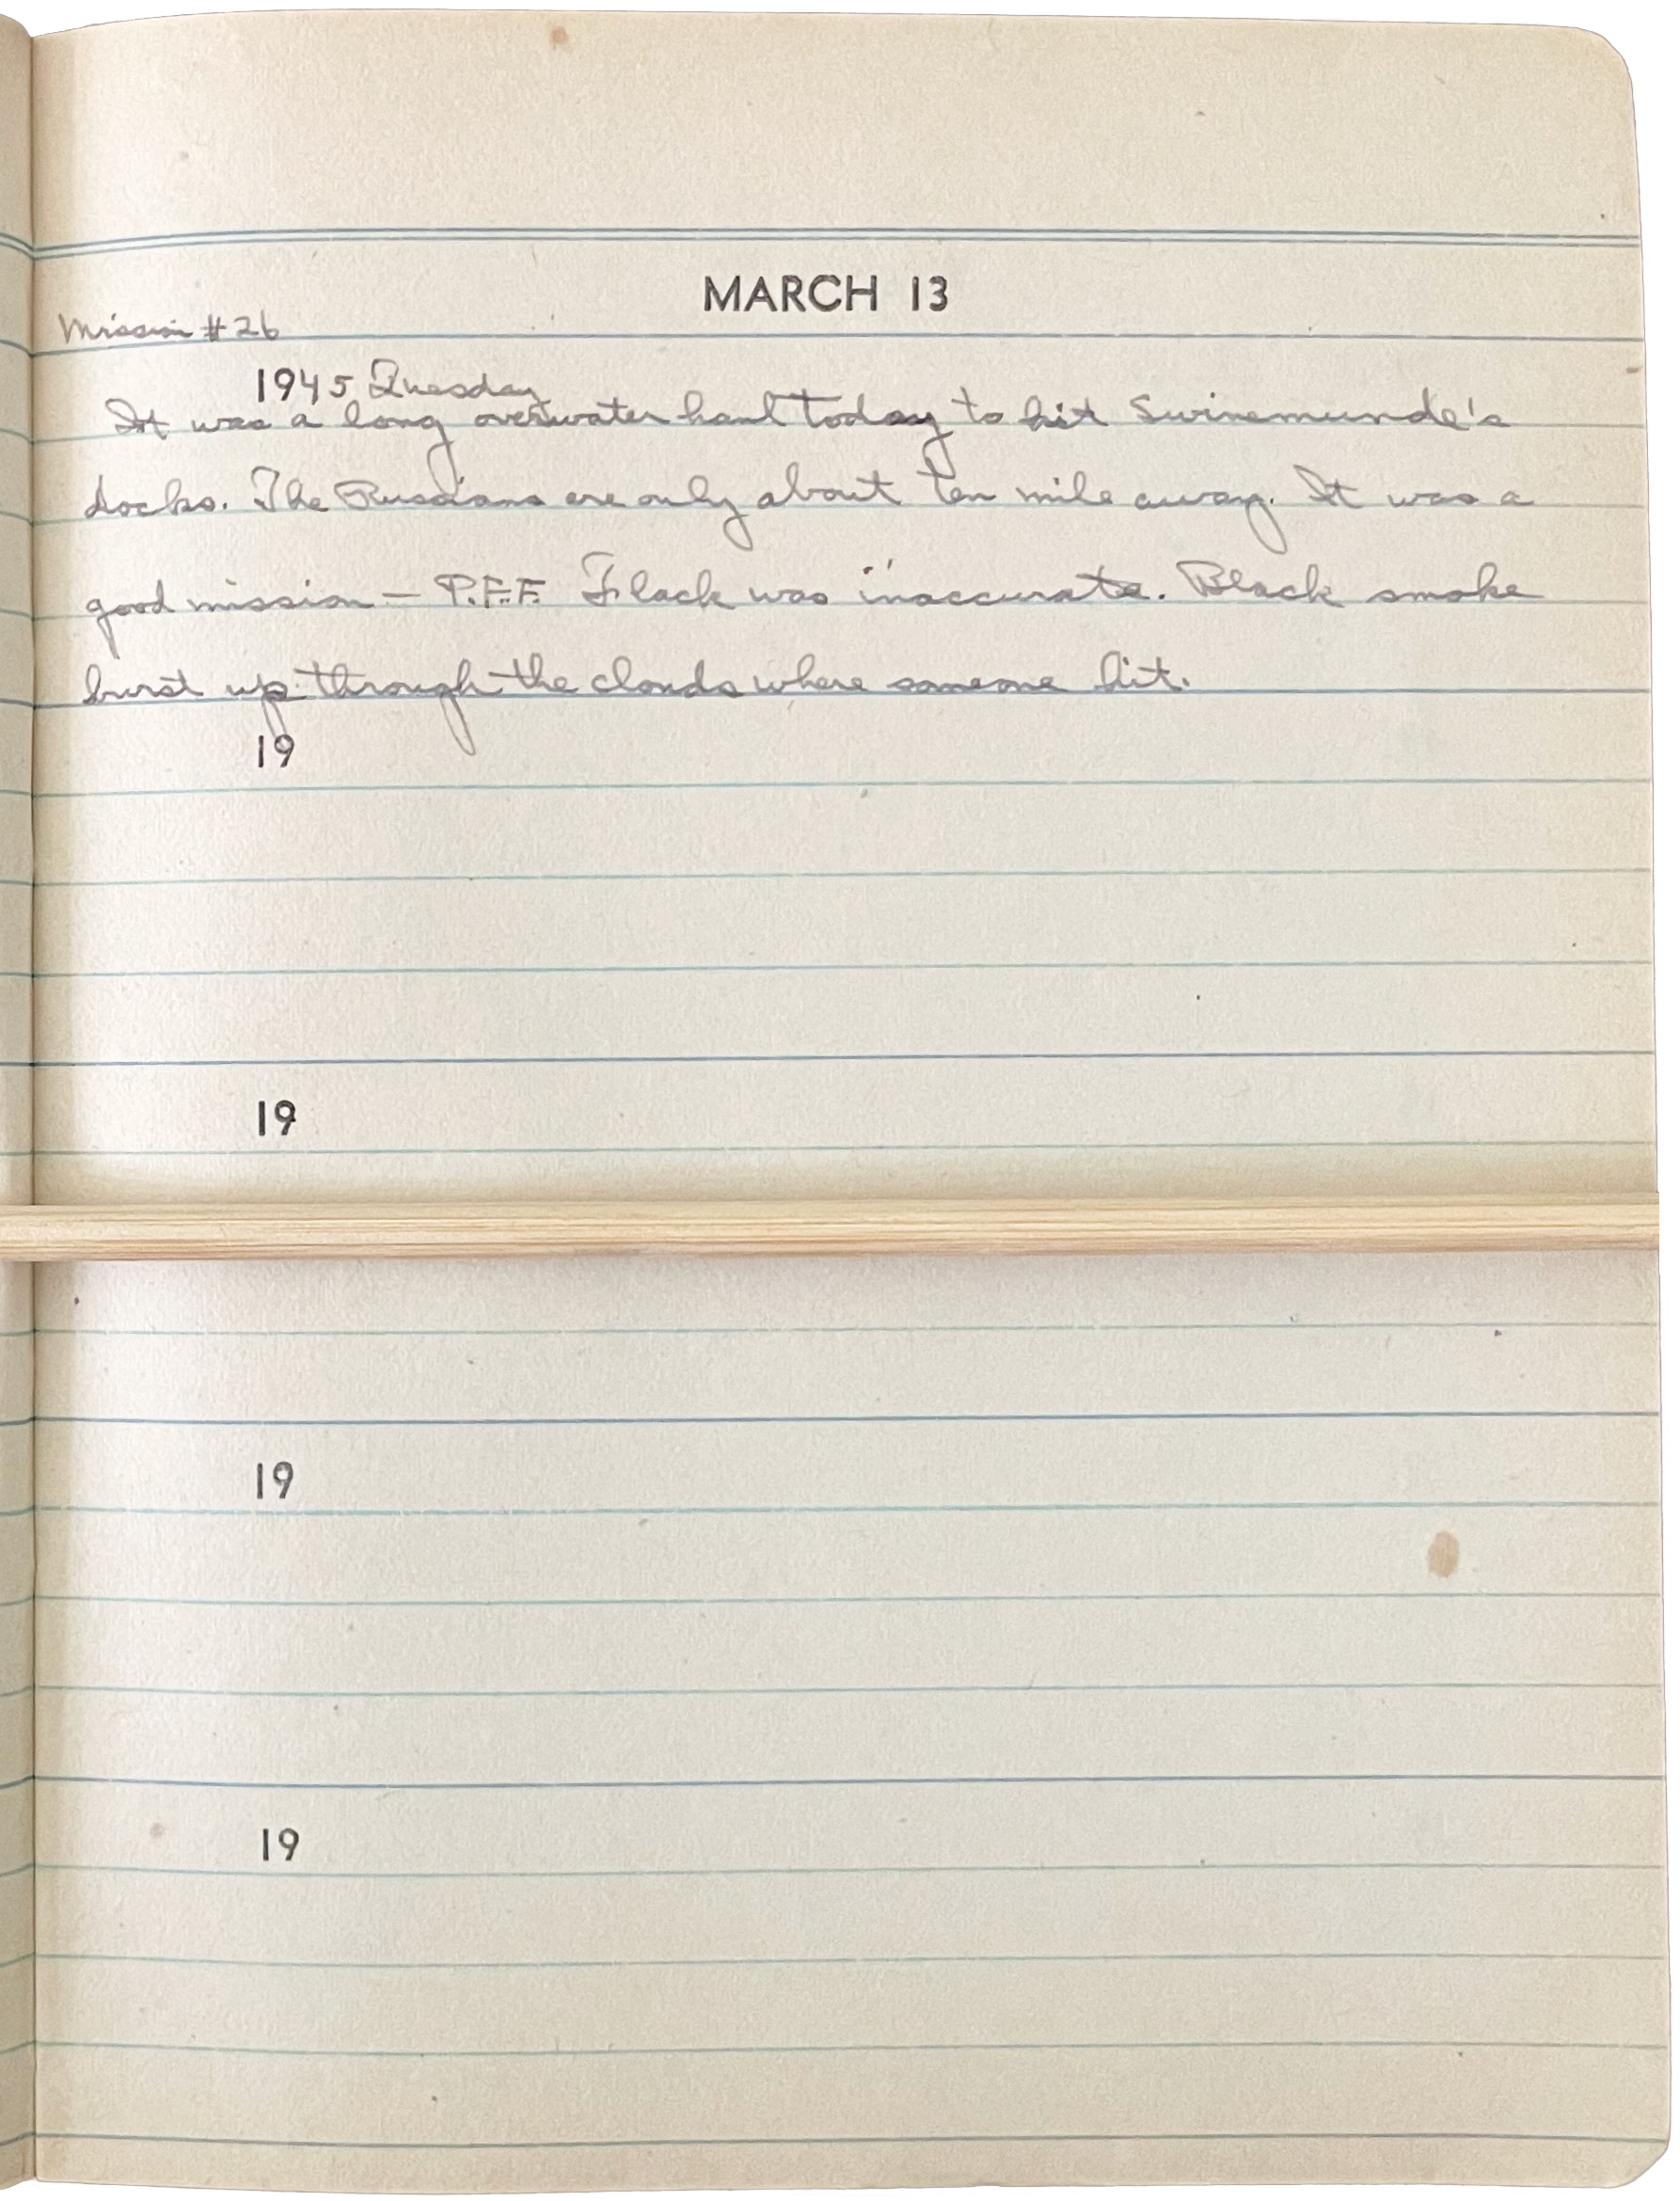 MARCH 13
Mission #26
1945 Tuesday
It was a long overwater haul today to hit Swinemunde's
docks. The Russians are only about ten mile away. It was a
good mission — P.F.F. Flack was inaccurate. Black smoke
burst up through the clouds where someone hit.
19
19
19
19